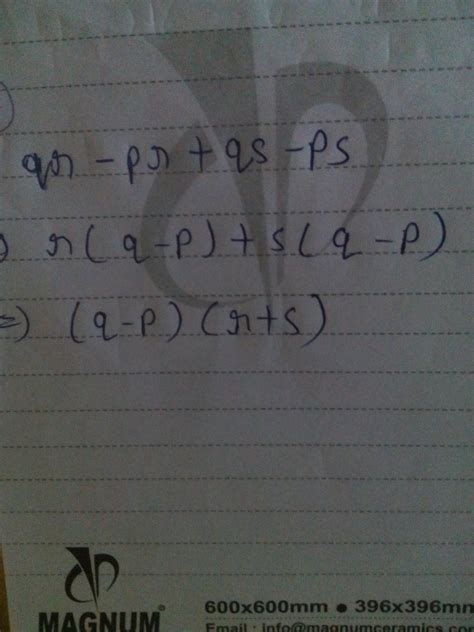 qr - pr + qs - ps
r(q-p) + s(q-p)
=) (q-p) (r+s)
MAGNUM
600x600mm ● 396x396mm
Email : info@magnumceramics.com